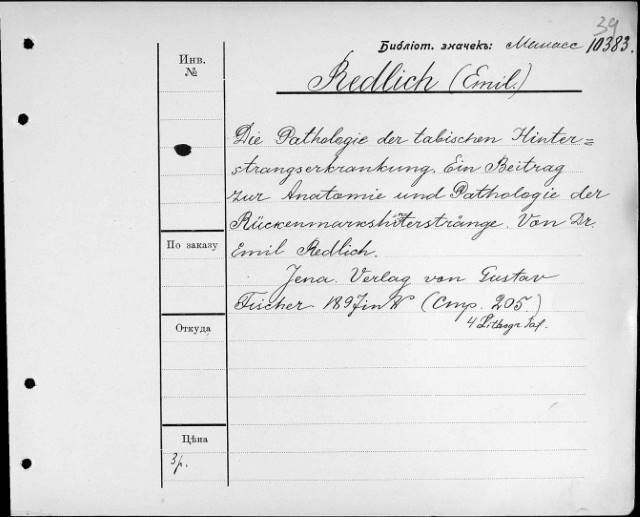 39
Библіот. значекъ: Манасс 10383.
Инв.
№
Redlich (Emil.)
Die Pathologie der tabischen Hinter=
strangserkrankung. Ein Beitrag
zur Anatomie und Pathologie der
Rückenmarkshinterstränge. Von Dr.
Emil Redlich.
По заказу
Jena. Verlag von Gustav
Fischer 1897 in 8° (Стр. 205.)
4 Lithogr Taf.
Откуда
Цѣна
3р.